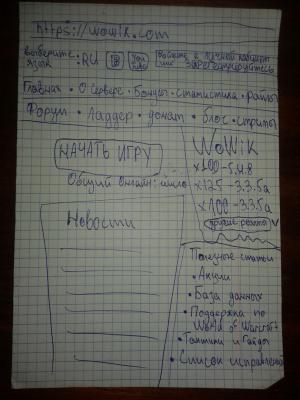 https://wowik.com
выберите язык :RU В You Tube Войдите в личный кабинет или зарегистрируйтесь
Главная • О сервере • Бонусы • статистика • рейтинг
Форум • Ладдер • донат • блок • стримы
НАЧАТЬ ИГРУ
Общий онлайн:
WoWiK
x100 - 5.4.8
x125 - 3.3.5a
x100 - 3.3.5a
Новости
Полезные статьи
• Акции
• База данных
• Поддержка по
World of Warcraft
• Тактики и гайды
• Список исправлений